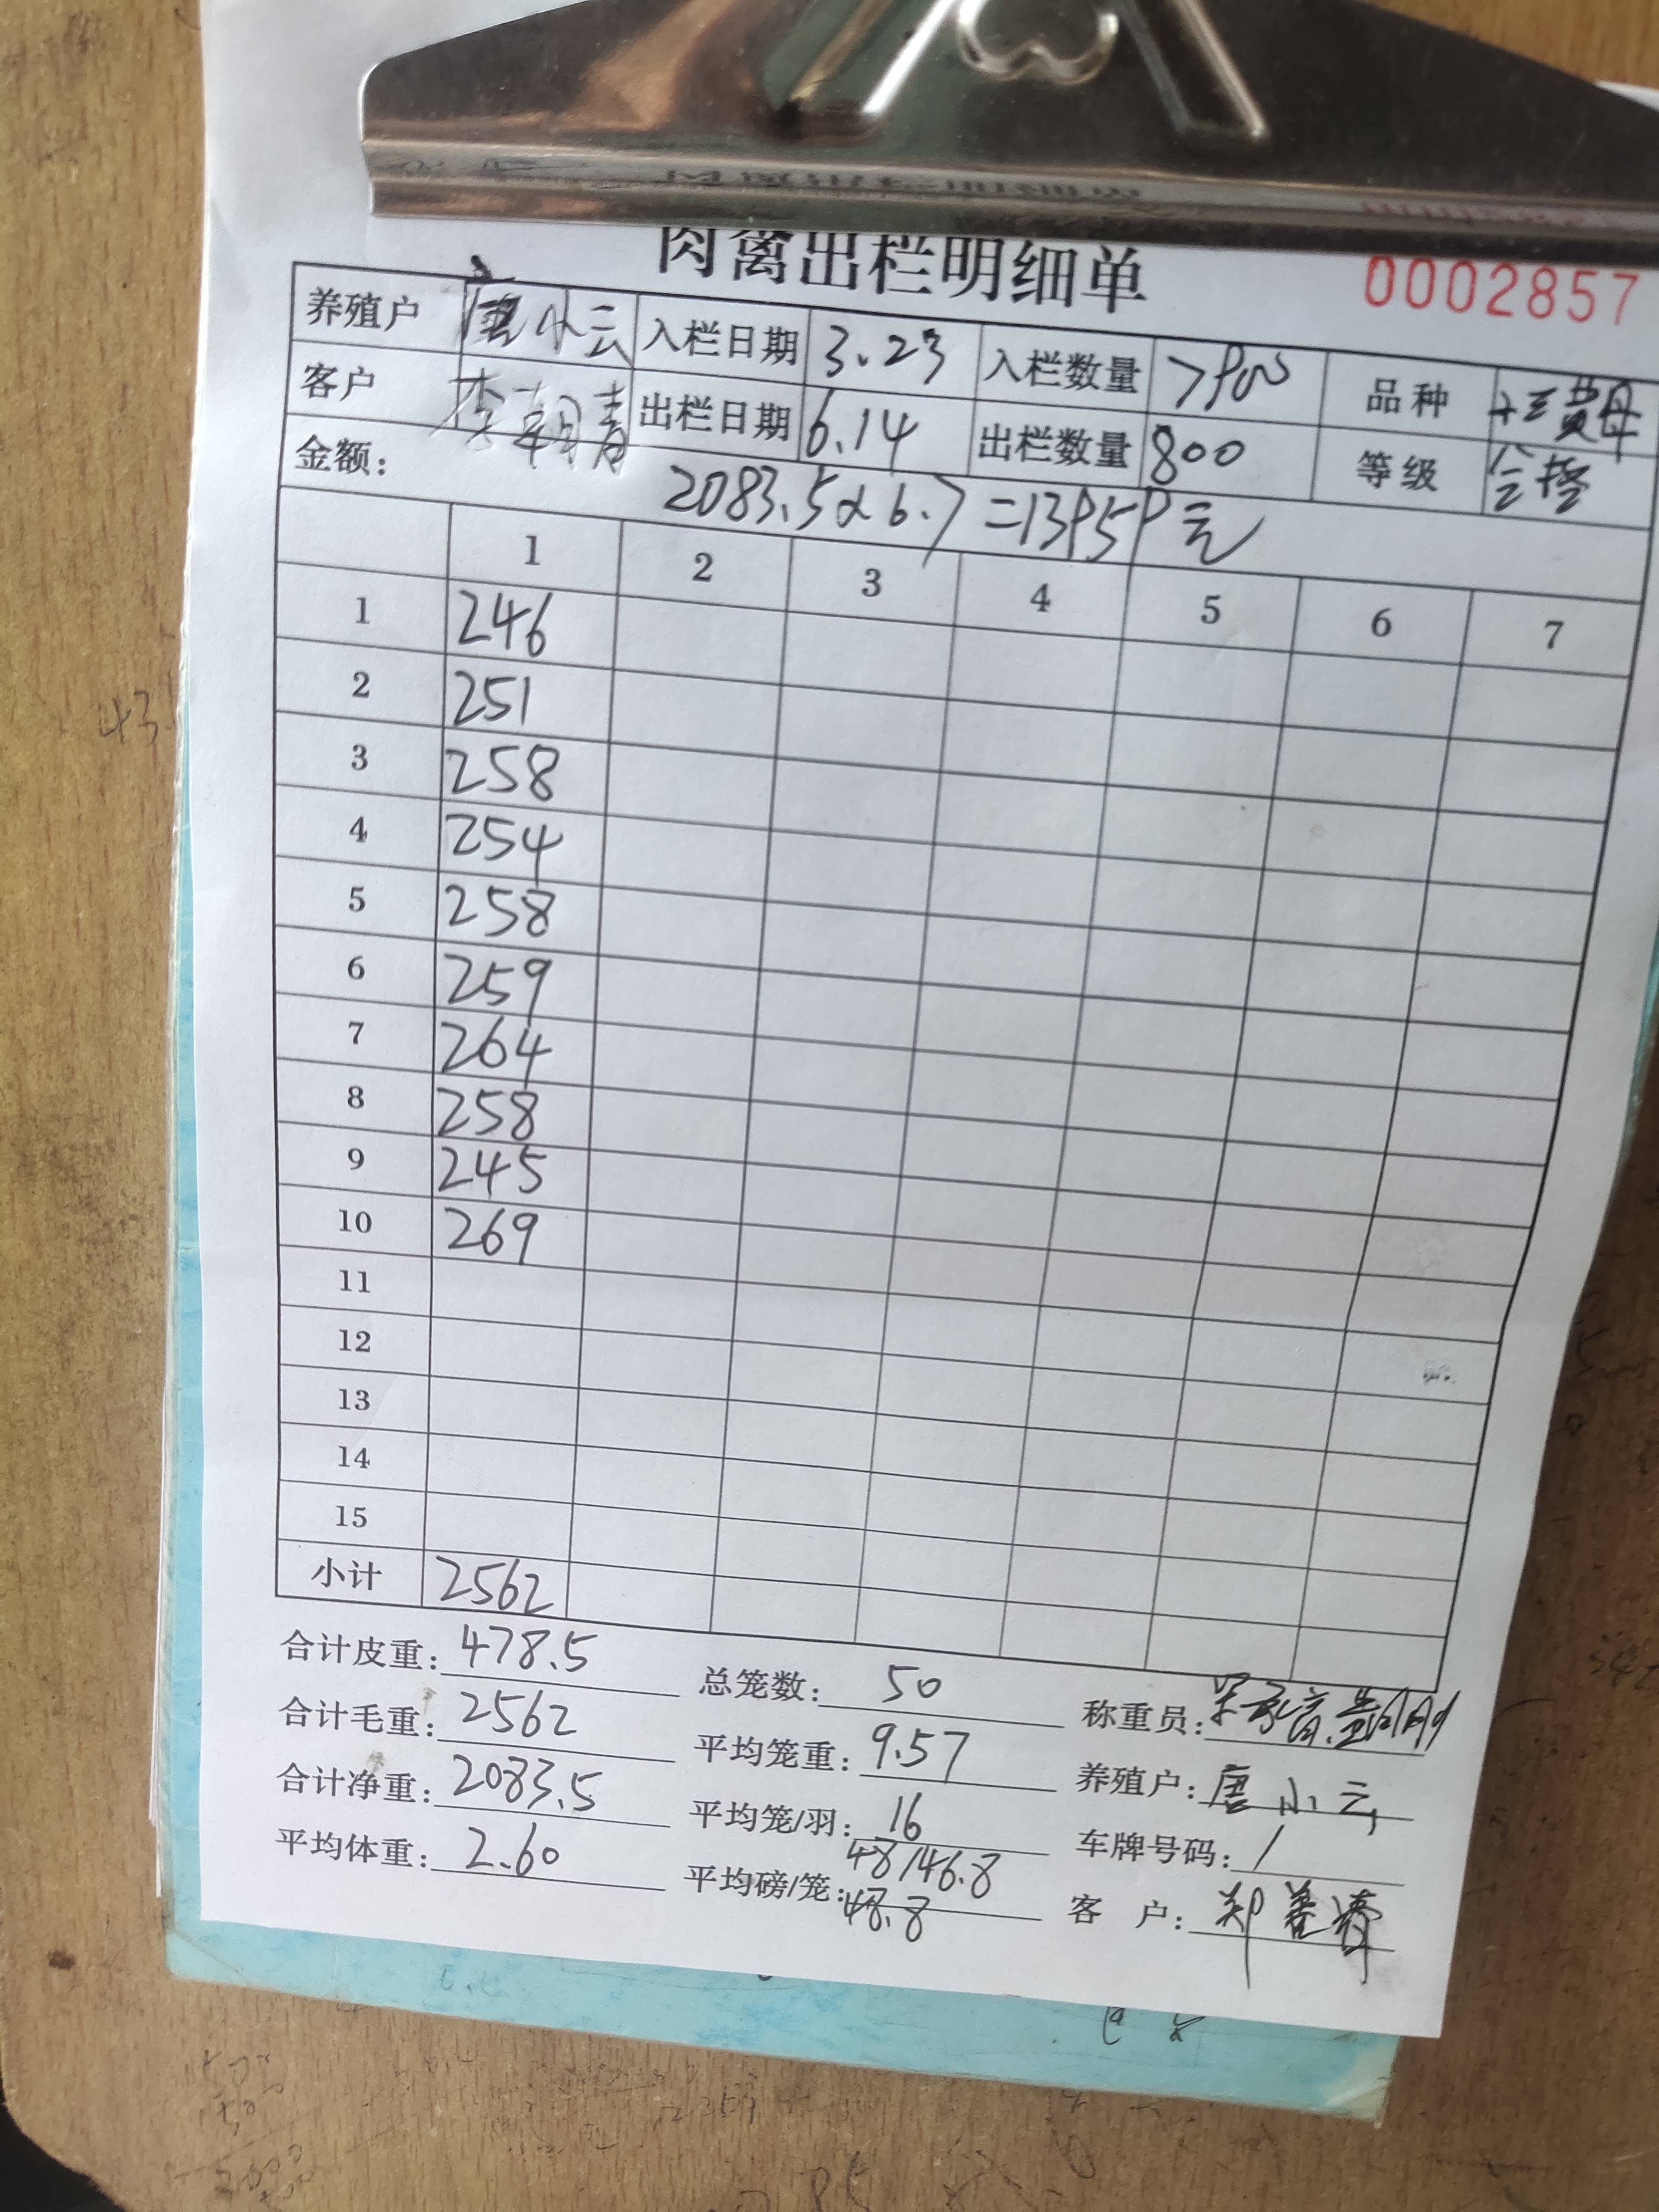 肉禽出栏明细单 0002857
养殖户 唐小云 入栏日期 3.23 入栏数量 7900 品种
客户 李朝青 出栏日期 6.14 出栏数量 800 等级 合格
金额: 2083.5×6.7=13959元
1 2 3 4 5 6 7
1 246
2 251
3 258
4 254
5 258
6 259
7 264
8 258
9 245
10 269
11
12
13
14
15
小计 2562
合计皮重: 478.5 总笼数: 50 称重员:
合计毛重: 2562 平均笼重: 9.57 养殖户: 唐小云
合计净重: 2083.5 平均笼/羽: 16 车牌号码: /
平均体重: 2.60 平均磅/笼: 48/46.8 客 户:
48.8
43